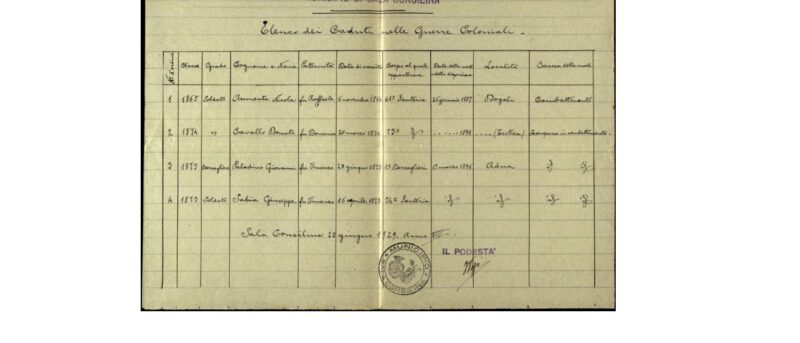 Elenco dei Caduti nelle Guerre Coloniali.
N. d'ordine Classe Grado Cognome e Nome Paternità Data di nascita Corpo al quale apparteneva Data della morte o della dispersione Località Causa della morte
1 1865 Soldato Nicola fu Raffaele 6 novembre Fanteria 26 gennaio 1887 Dogali Combattimento
2 1874 " Cavallo Donato fu Domenico 20 marzo 1874 1896 (Eritrea) Scomparso in combattimento
3 1873 Bersagliere Paladino Giovanni fu Vincenzo 29 giugno 1873 Bersaglieri 1° marzo 1896 Adua
4 1873 Soldato Sabia Giuseppe fu Vincenzo 16 aprile 1873 Fanteria
Sala Consilina 23 giugno 1929. Anno VII
IL PODESTA'
MUNICIPIO